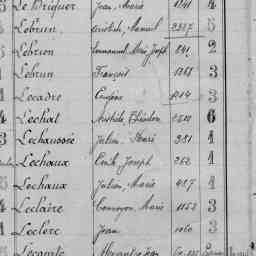 Le Briquer Jean Marie 1241 4
5 Lebrun Aristide, Manuel 2337 5
5 Lebrun Emmanuel Marie Joseph 841 2
1 Lebrun François 1268 3
1 Lecadre Eugène 1214 3
4 Lechat Aristide 6
3 Lechaussée Julien 381 1
Lechaux Emile Joseph 262 1
5 Lechaux Julien, Marie 427 1
4 Leclaire Marie 1152 3
1 Leclerc Jean 1060 3
Lecomte Jean